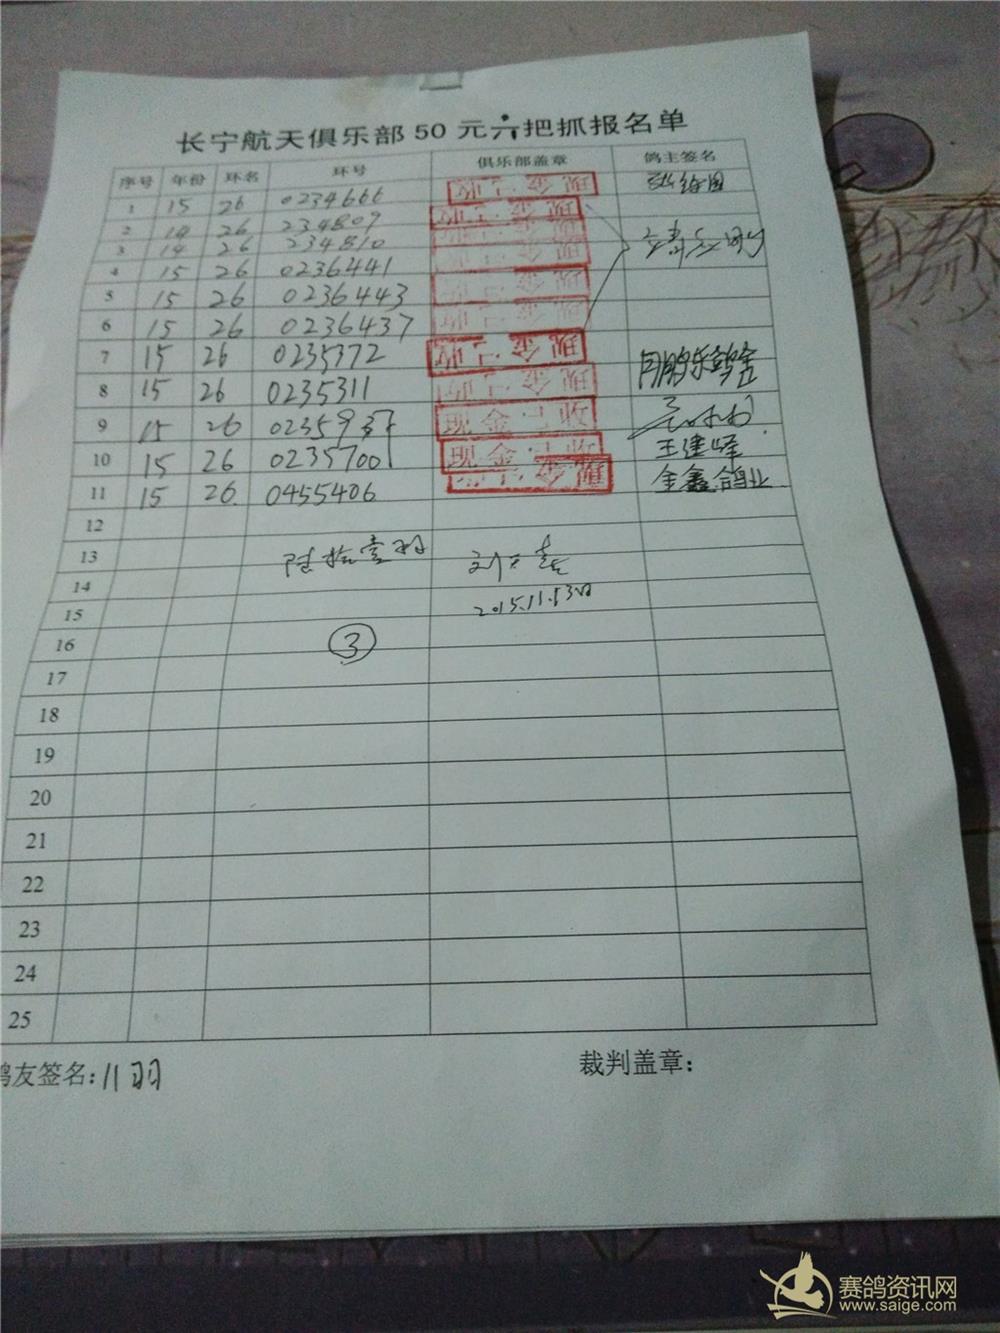 长宁航天俱乐部50元六把抓报名单
序号 年份 环名 环号 俱乐部盖章 鸽主签名
1 15 26 0234666 现金已收
2 14 26 234809 现金已收
3 14 26 234810
4 15 26 0236441
5 15 26 0236443
6 15 26 0236437
7 15 26 0235372 现金已收
8 15 26 0235311 现金已收
9 15 26 023593 现金已收
10 15 26 0235700 现金已收 王建峰
11 15 26 0455406 现金已收 金鑫鸽业
12
13
14
15 2015.11.13日
16 ③
17
18
19
20
21
22
23
24
25
鸽友签名:11羽 裁判盖章:
赛鸽资讯网
www.saige.com